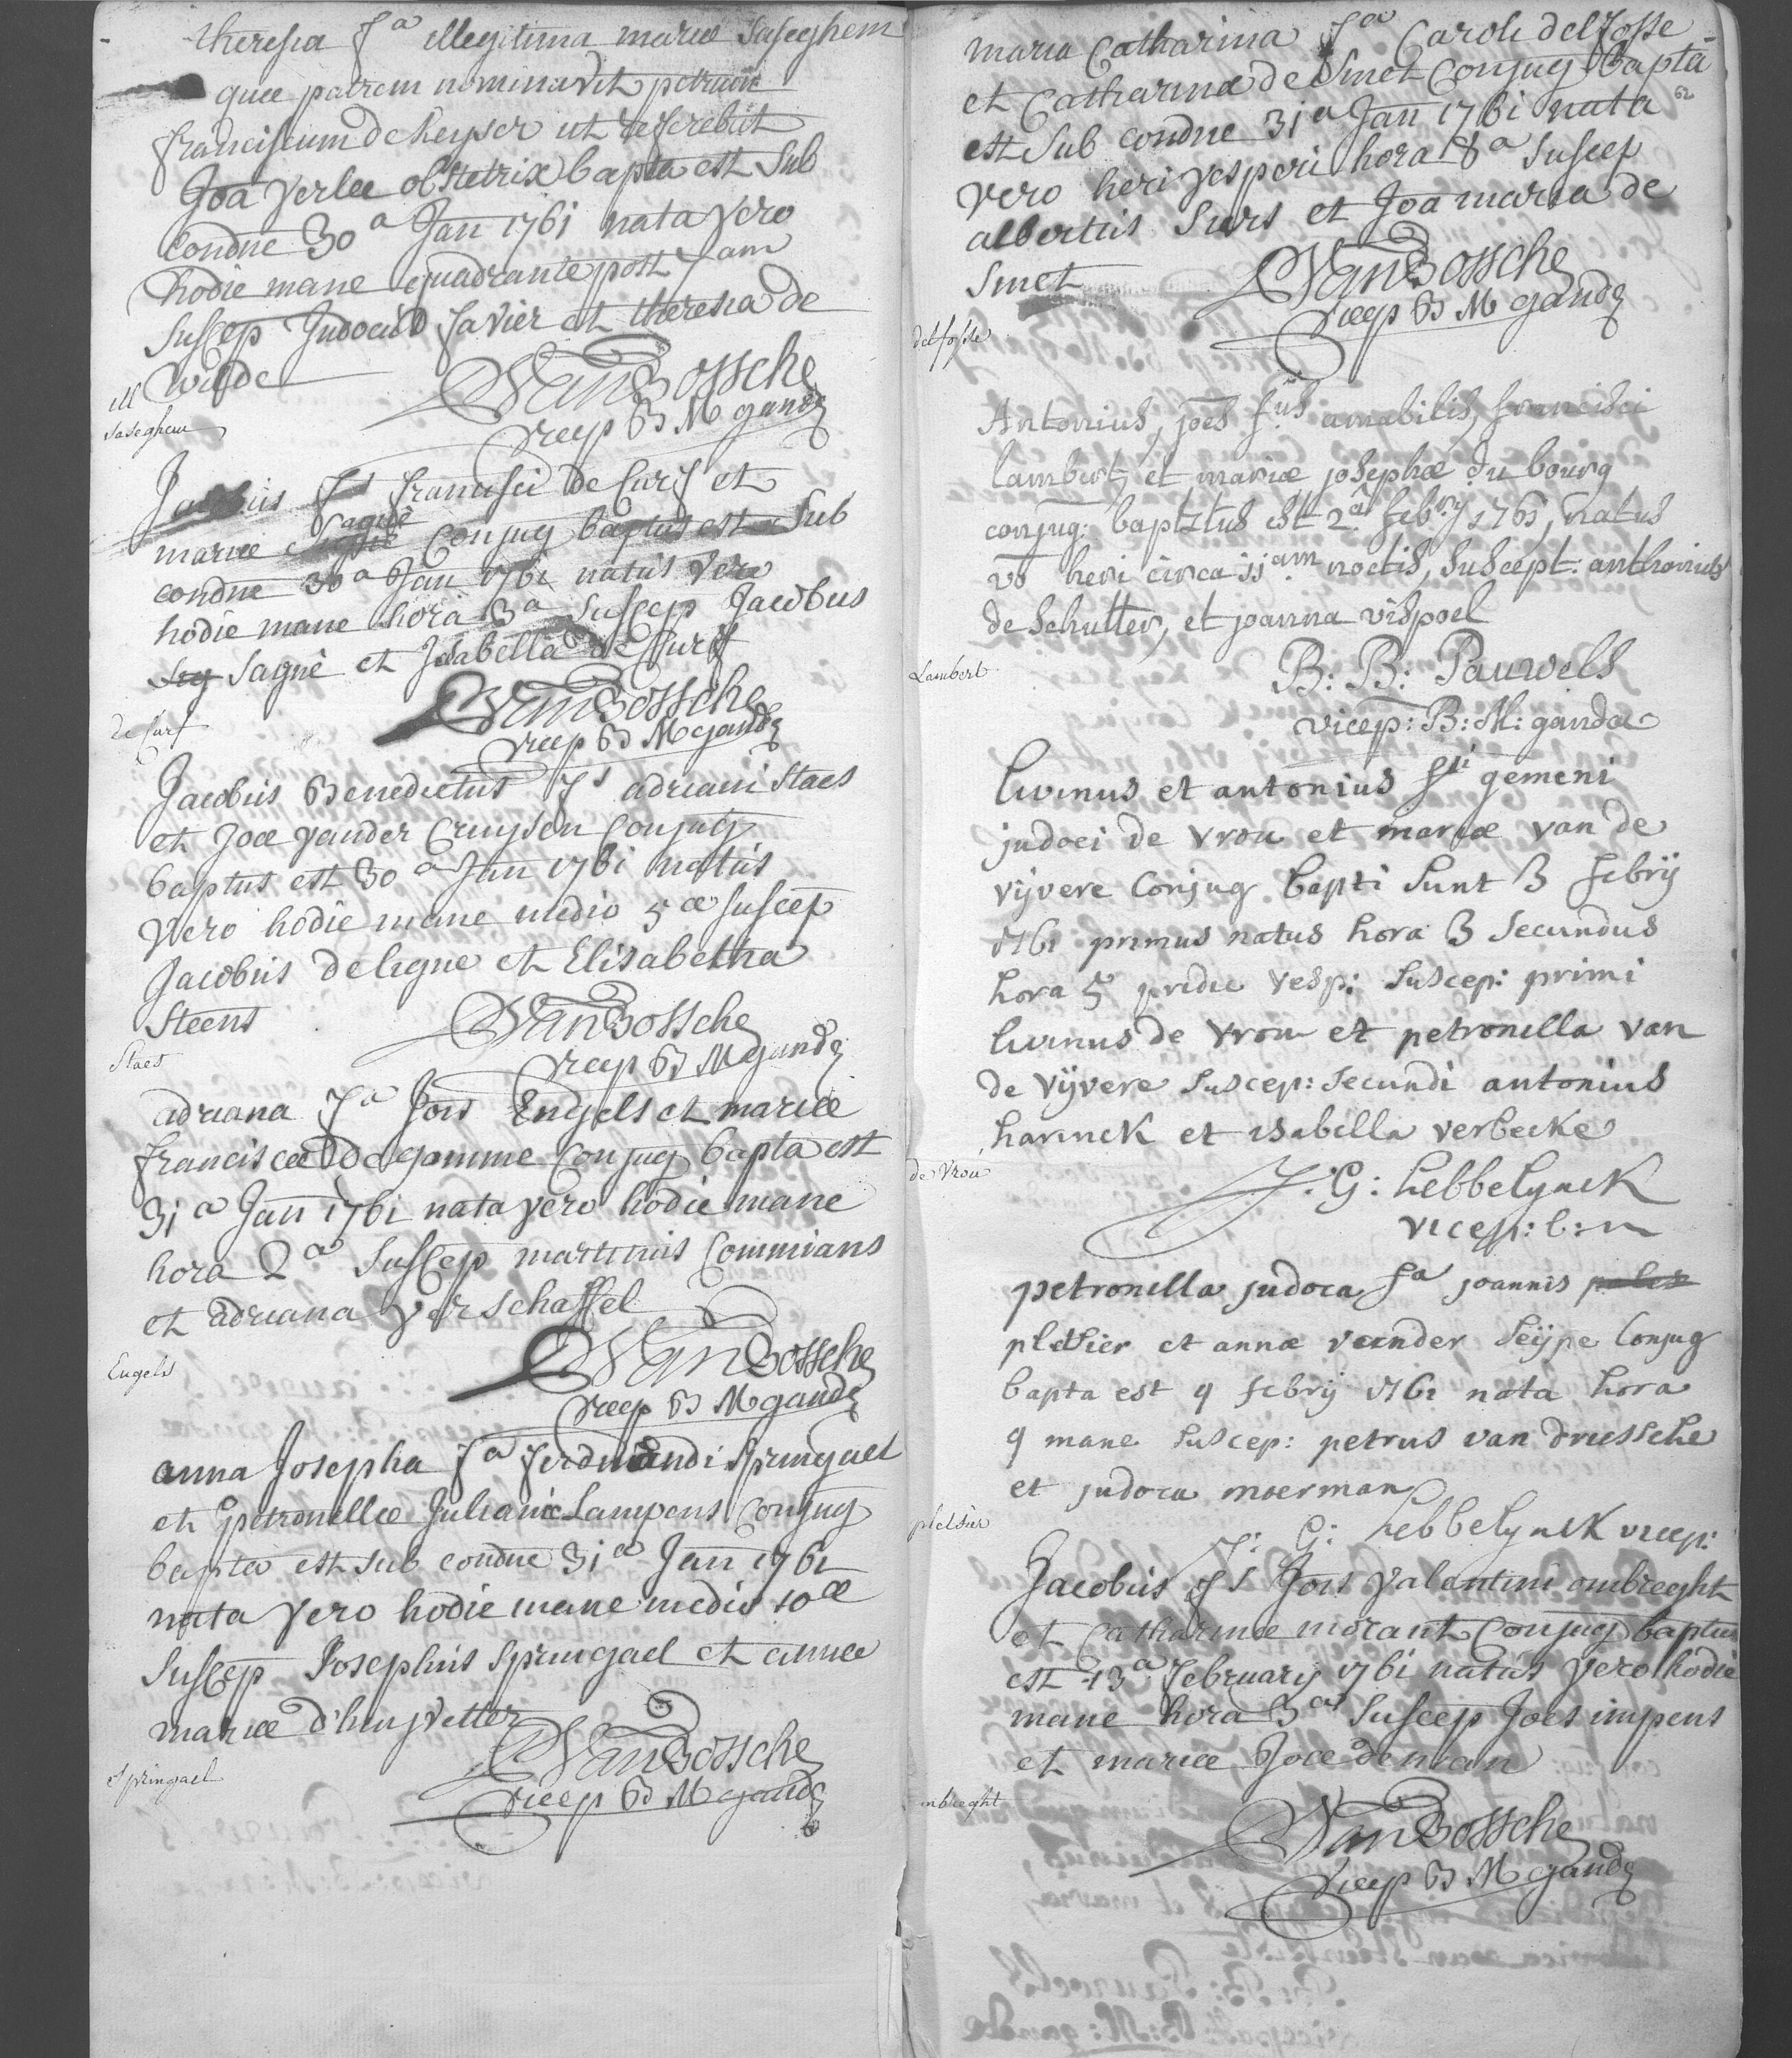 theresia fa illegitima mariæ Saseghem
quæ patrem nominavit petrum
franciscum de keyser ut referebat
Joa Verlee obstetrix bapta est sub
condne 30a Jan 1761 nata vero
hodie mane quadrante post 7am
suscep Judocus Savier et theresia de
Wilde
VandBossche
vicep B M gandę
ill
Saseghem
Jacobus fs francisci de Curf et
mariæ Sagné conjug baptus est sub
condne 30a Jan 1761 natus vero
hodie mane hora 3a suscep Jacobus
Sagné et Isabella de Curf
VandBossche
vicep B M gandę
de Curf
Jacobus Benedictus fs adriani Staes
et Joæ vander Cruysen conjug
baptus est 30a Jan 1761 natus
vero hodie mane medio 5æ suscep
Jacobus deligne et Elisabetha
Steens
VandBossche
vicep B M gandę
Staes
adriana fa Jois Engels et mariæ
franciscæ de gomme conjug bapta est
31a Jan 1761 nata vero hodie mane
hora 2a suscep martinus Commians
et adriana verschaffel
VandBossche
vicep B M gandę
Engels
anna Josepha fa ferdinandi Springael
et petronillæ Julianæ Lampens conjug
bapta est sub condne 31a Jan 1761
nata vero hodie mane medio 10æ
suscep Josephus Springael et annæ
mariæ d'huyvetter
VandBossche
vicep B M gandę
Springael
maria Catharina fa Caroli delfosse
et Catharinæ de Smet conjug bapta
62
est sub condne 31a Jan 1761 nata
vero heri vesperi hora 8a suscep
albertus Surs et Joa maria de
Smet
VandBossche
vicep B M gandę
delfosse
Antonius, joes fus amabilis, francisci
lambert, et mariæ josephæ du bourg
conjug: baptztus est 2a febry 1761, natus
vo heri circa 11am noctis, suscept: anthonius
de Schutter, et joanna vispoel
B: B: Pauwels
vicep: B: M: gandæ
Lambert
livinus et antonius fii gemeni
judoci de vrou et mariæ van de
vijvere conjug bapti sunt 3 febrij
1761 primus natus hora 3 secundus
hora 5 pridie vesp: suscep: primi
livinus de vrou et petronilla van
de vijvere suscep: secundi antonius
harinck et isabella verbecke
J: G: hebbelynck
vicep: b: m
de Vrou
petronilla judoca fa joannis
pletsier et annæ vander seijpe conjug
bapta est 9 febrij 1761 nata hora
9 mane suscep: petrus van driessche
et judoca moerman
J: G: hebbelynck vicep:
pletsier
Jacobus fs Jois Valentini ombreght
et Catharinæ morant conjug baptus
est 13a februarij 1761 natus vero hodie
mane hora 3a suscep Joes impens
et mariæ Joæ deman
VandBossche
vicep B M gandę
mbreght